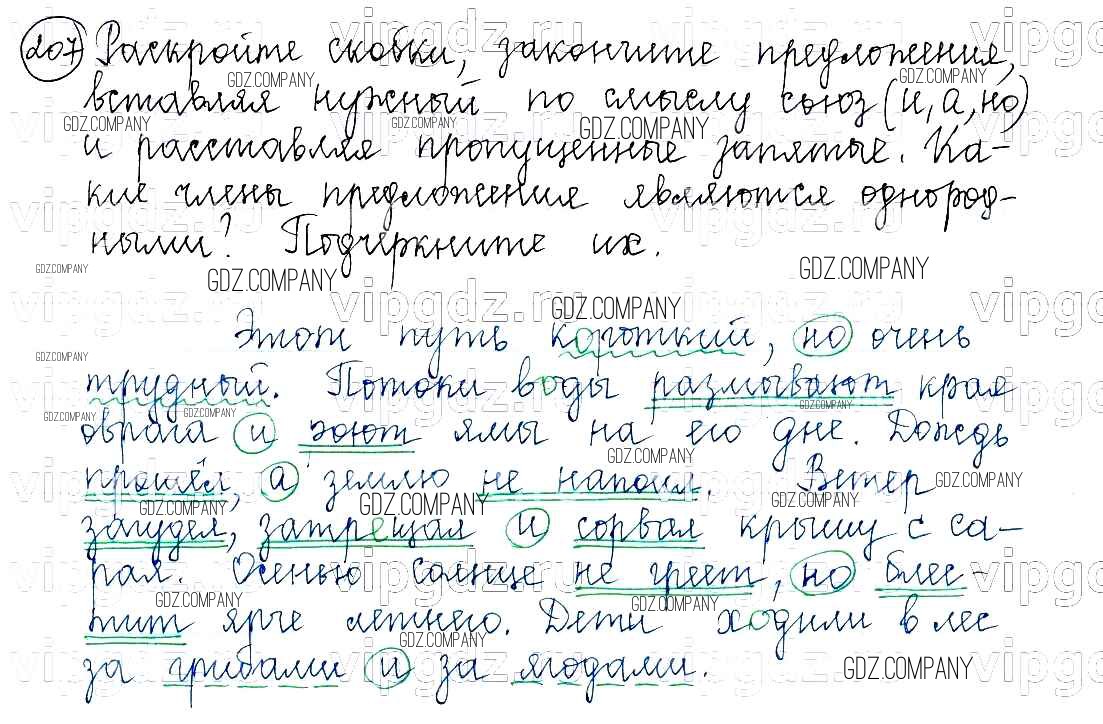 207 Раскройте скобки, закончите предложения,
вставляя нужный по смыслу союз (и, а, но)
и расставляя пропущенные запятые. Ка-
кие члены предложения являются однород-
ными? Подчеркните их.
Этот путь короткий, но очень
трудный. Потоки воды размывают края
оврага и роют ямы на его дне. Дождь
прошёл, а землю не напоил. Ветер
загудел, затрещал и сорвал крышу с са-
рая. Осенью солнце не греет, но блес-
тит ярче летнего. Дети ходили в лес
за грибами и за ягодами.